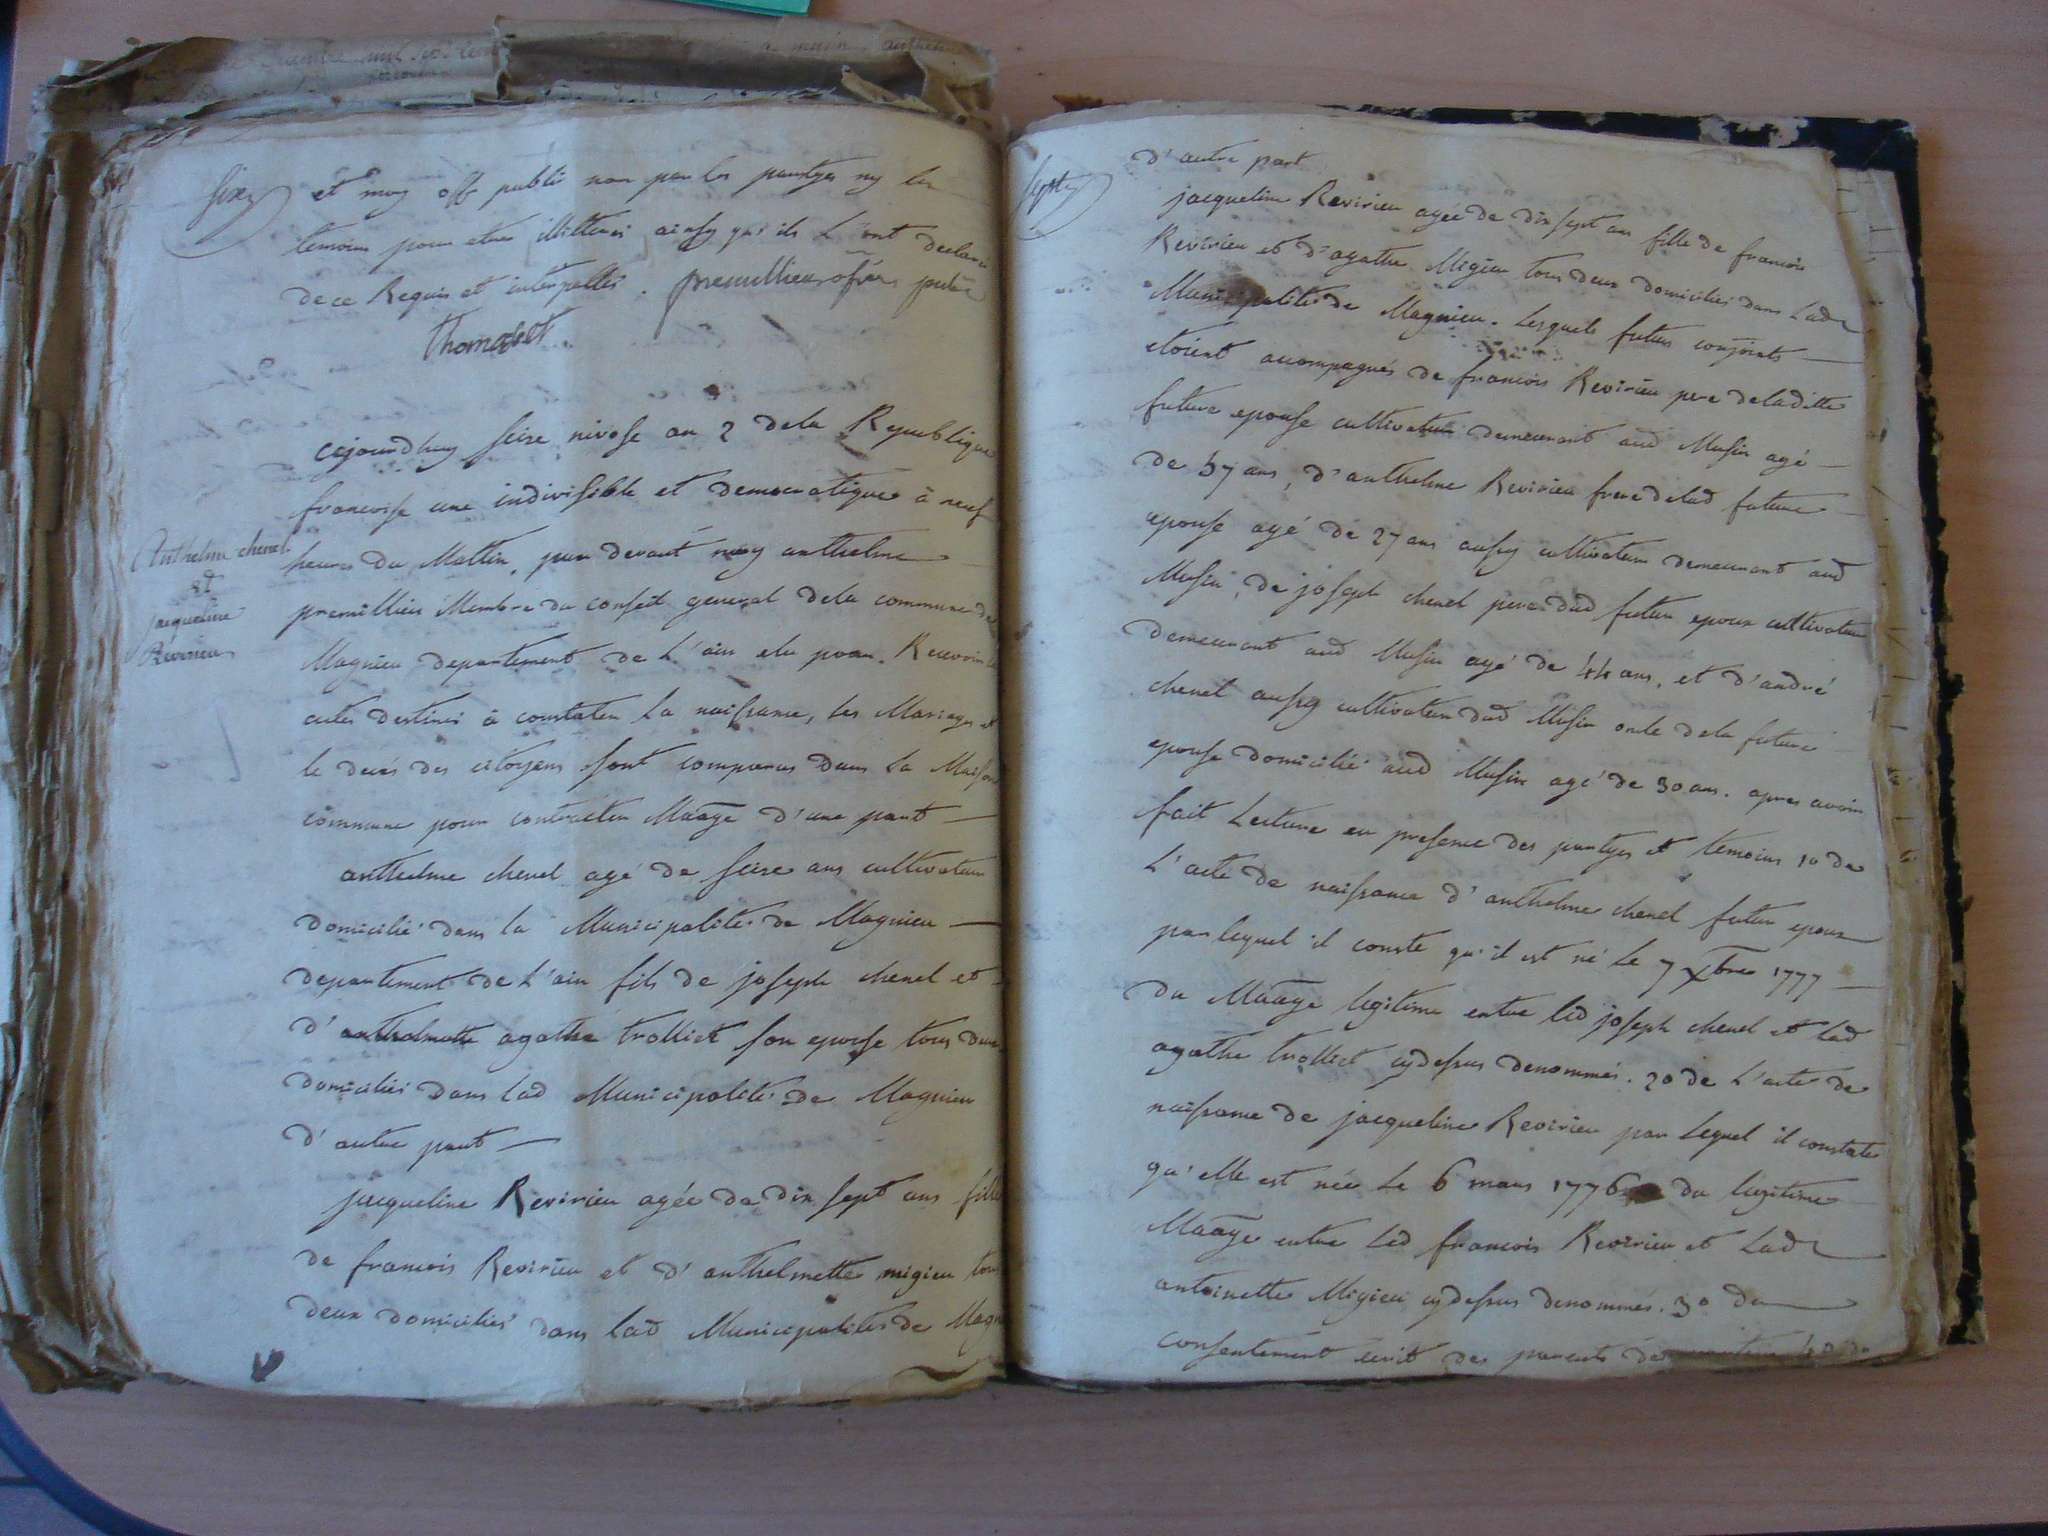 sixe
et moy off public non par les partyes ny les
temoins pour etre illitterés ainsy qu'ils l'ont declaré
de ce Requis et interpellés . premillieu ofier public
Thomasset
Anthelme chenel
et
jacqueline
Revirieu
cejourdhuy seize nivose an 2 dela Republique
francoise une indivisible et democratique à neuf
heures du Mattin, par devant moy anthelme
premillieu Membre du conseil general dela commune de
Magnieu departement de L'ain elu pour Recevoir les
actes destinés à constater la naissance, les Mariages et
le decés des citoyens sont comparus dans la Maison
commune pour contracter Maage d'une part —
anthelme chenel agé de seize ans cultivateur
domicilié dans la Municipalité de Magnieu —
departement de L'ain fils de joseph chenel et
d'anthelmette agathe trolliet son epouse tous deux
domiciliés dans lad Municipalité de Magnieu
d'autre part —
jacqueline Revirieu agée de dix sept ans fille
de francois Revirieu et d'anthelmette migieu tous
deux domiciliés dans lad Municipalité de Magn
septe
d'autre part
jacqueline Revirieu agée de dix sept ans fille de francois
Revirieu et d'agathe Migieu tous deux domiciliés dans Lad
Municipalité de Magnieu. Lesquels futurs conjoints —
etoient accompagnés de francois Revirieu pere deladitte
future epouse cultivateur demeurant aud Musin agé —
de 57 ans, d'anthelme Revirieu frere delad future
epouse agé de 27 ans aussy cultivateur demeurant aud
Musin, de joseph chenel pere dud futur epoux cultivateur
demeurant aud Musin agé de 44 ans, et d'andré
chenel aussy cultivateur dud Musin oncle dela future
epouse domicilié aud Musin agé de 30 ans. apres avoir
fait Lecture en presence des partyes et temoins 1o de
L'acte de naissance d'anthelme chenel futur epoux
par lequel il conste qu'il est né Le 7 Xbre 1777 —
du Maage legitime entre led joseph chenel et lad
agathe trolliet cydessus denommés. 2o de L'acte de
naissance de jacqueline Revirieu par Lequel il constate
qu'elle est née Le 6 mars 1776 du legitime
Maage entre Led francois Revirieu et Lad
antoinette Migieu cydessus denommés. 3o du
consentement écrit des parents des